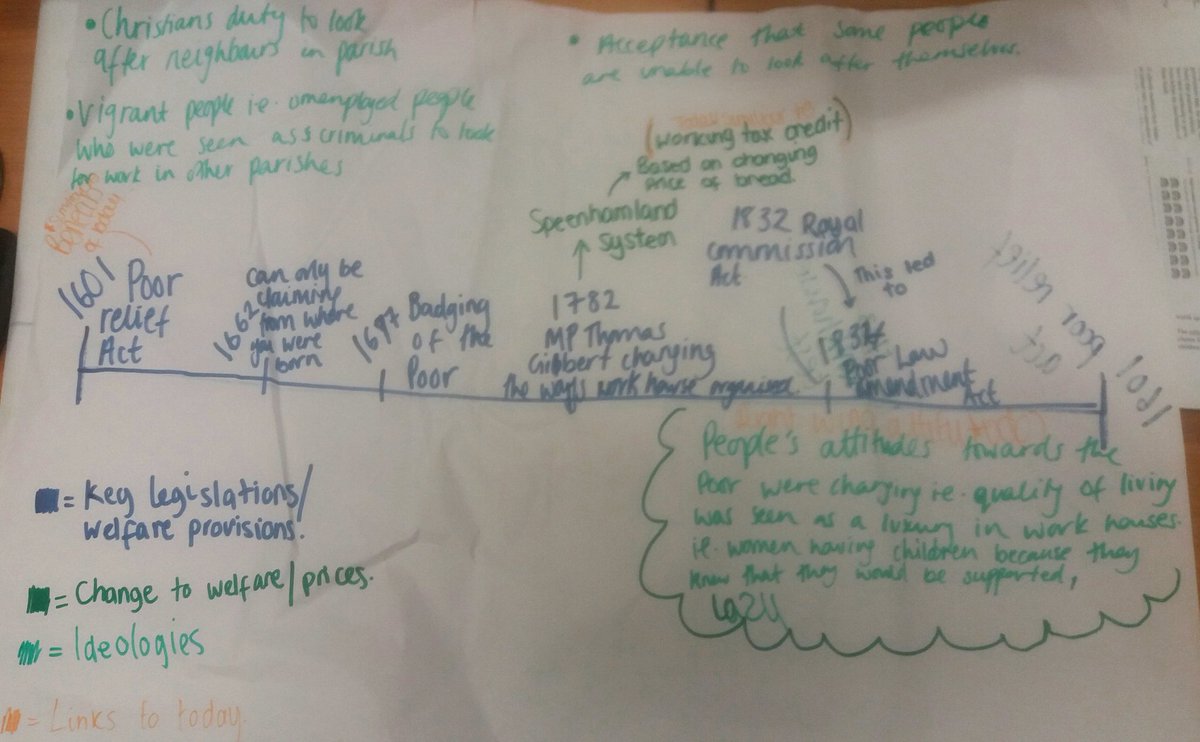 • Christians duty to look
after neighbours in parish
• Vigrant people i.e. omemployed people
who were seen ass criminals to look
for work in other parishes
• Acceptance that some people
are unable to look after themselves.
(working tax credit)
Based on changing
price of bread.
Speenhamland
System
1601 Poor
relief
Act
1662 can only be
claiming
from where
you were
born
1697 Badging
of the
Poor
1782
MP Thomas
Gilbert changing
the ways work house organised.
1832 Royal
commission
Act
This led
to
1834
Poor Law
amendment
Act
People's attitudes towards the
Poor were changing i.e. quality of living
was seen as a luxury in work houses.
i.e. women having children because they
knew that they would be supported,
= Key legislations/
welfare provisions.
= Change to welfare/prices.
= Ideologies
= Links to today.